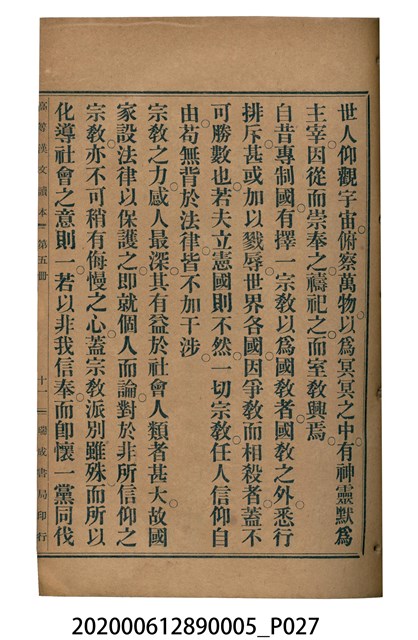 世人仰觀宇宙俯察萬物以爲冥冥之中有神靈默爲
主宰因從而崇奉之禱祀之而室敎興焉
自昔專制國有擇一宗敎以爲國敎者國敎之外悉行
排斥甚或加以戮辱世界各國因爭敎而相殺者蓋不
可勝數也若夫立憲國則不然一切宗敎任人信仰自
由苟無背於法律皆不加干涉
宗敎之力感人最深其有益於社會人類者甚大故國
家設法律以保護之卽就個人而論對於非所信仰之
宗敎亦不可稍有侮慢之心蓋宗敎派別雖殊而所以
化導社會之意則一若以非我信奉而卽懷一黨同伐
高等漢文讀本 第五冊 十一 瑞成書局印行
202000612890005_P027